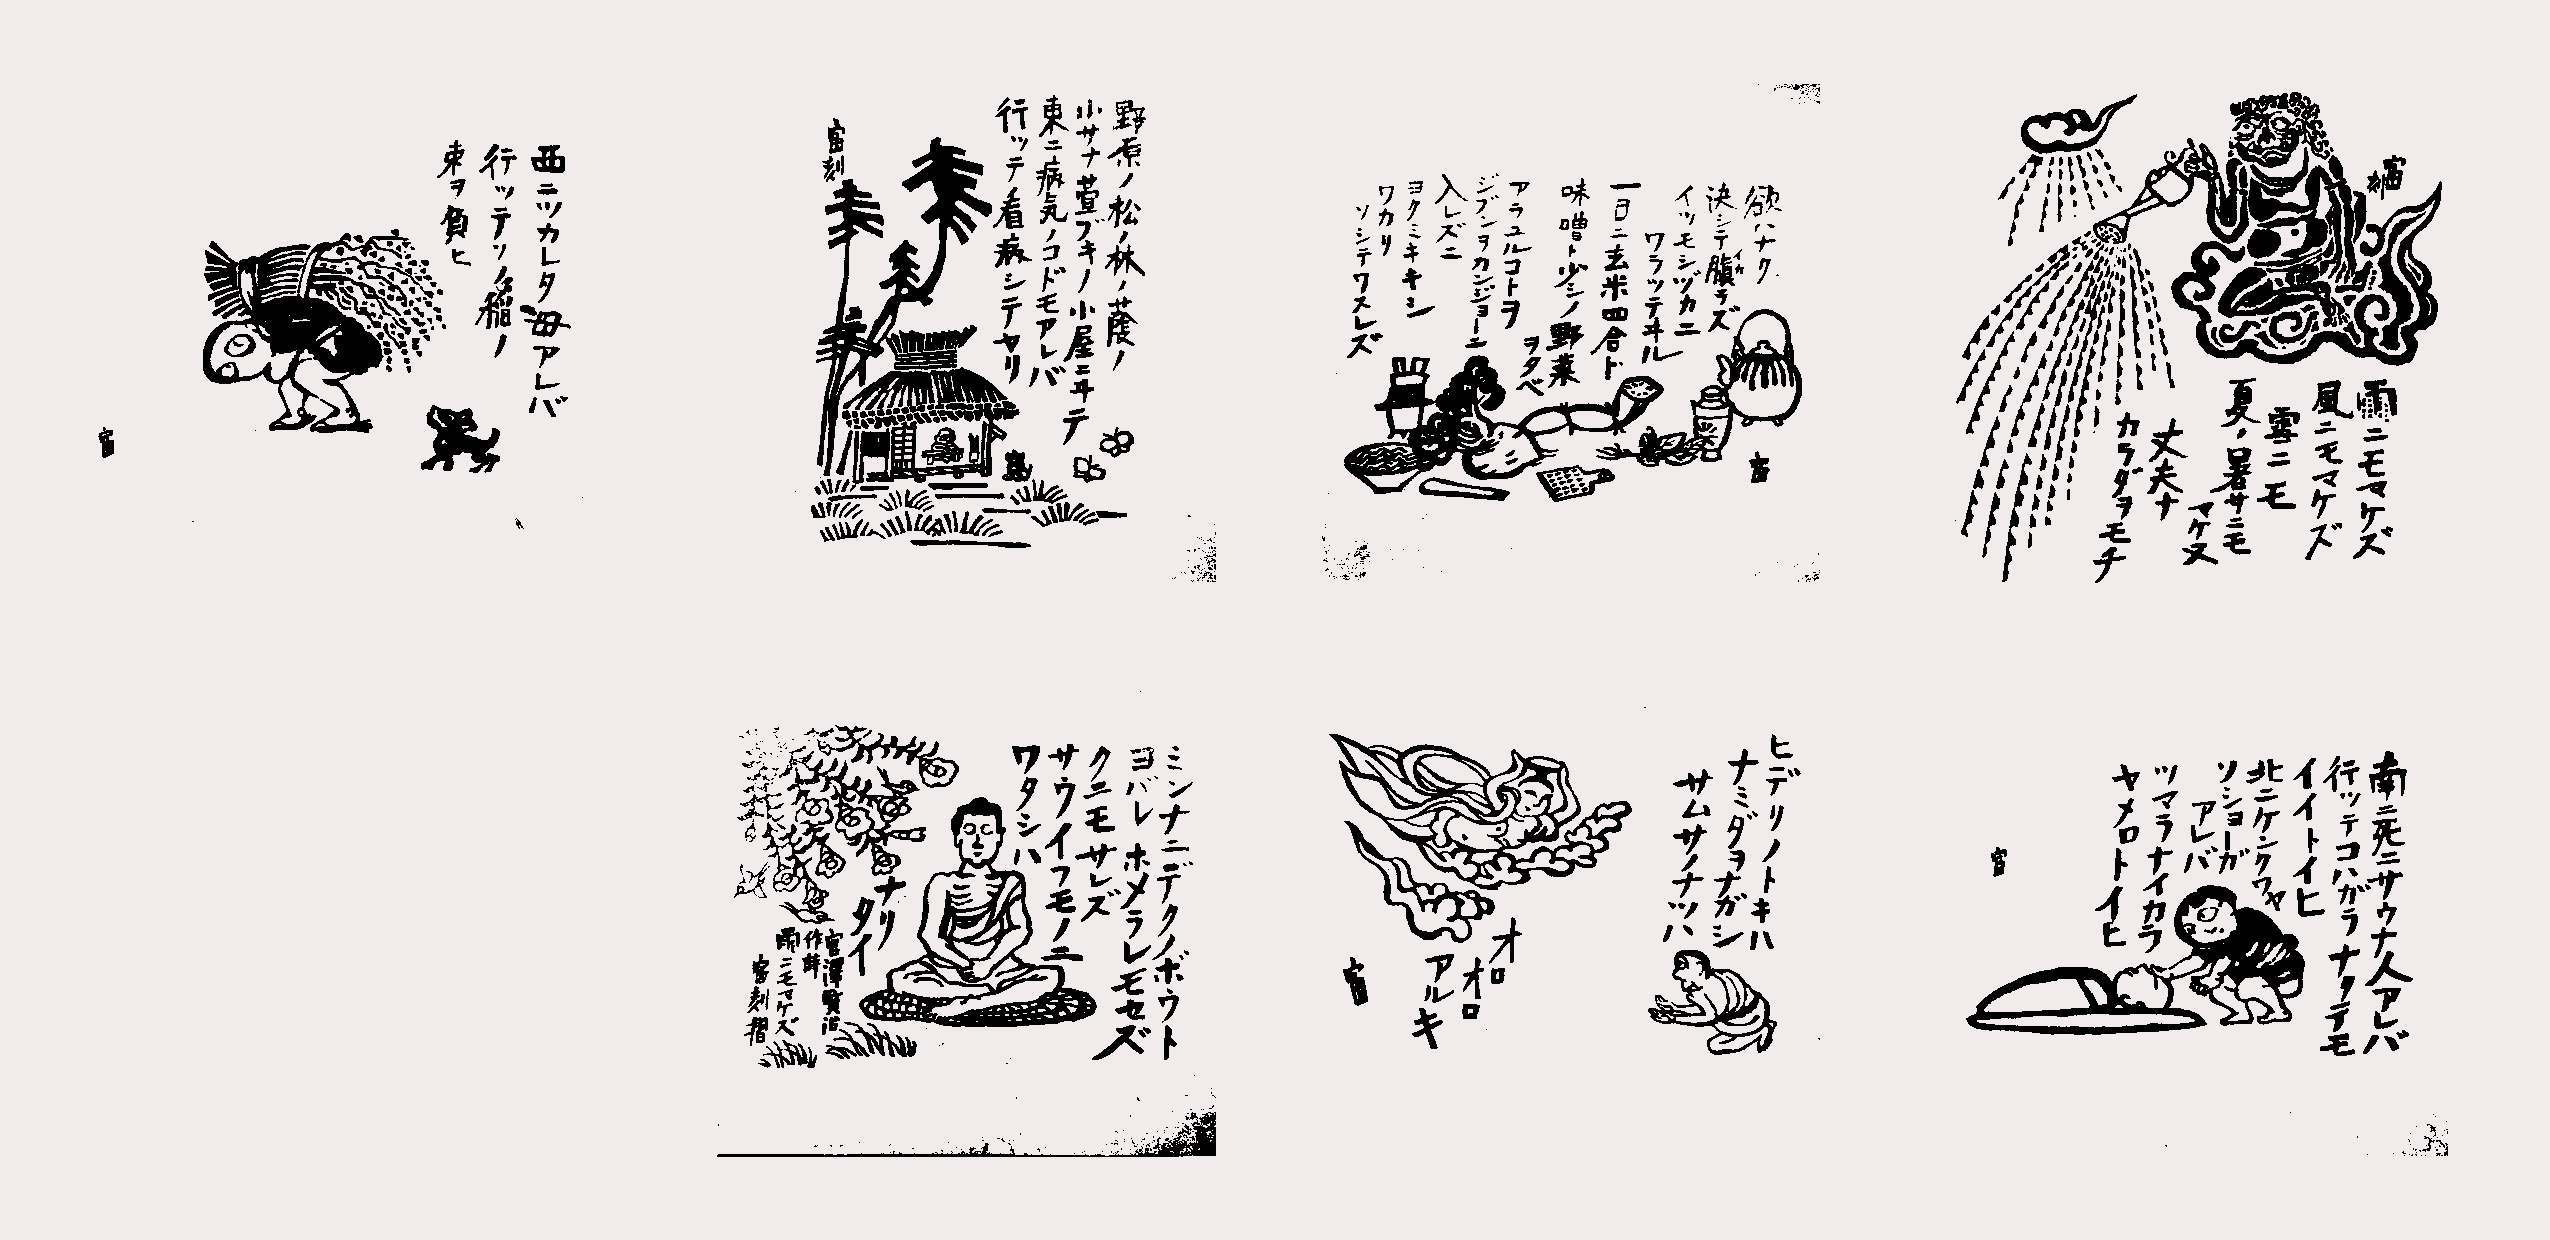 雨ニモマケズ
風ニモマケズ
雪ニモ
夏ノ暑サニモ
マケヌ
丈夫ナ
カラダヲモチ
富
欲ハナク
決シテ瞋ラズ
イカ
イツモシヅカニ
ワラッテヰル
一日ニ玄米四合ト
味噌ト少シノ野菜
ヲタベ
アラユルコトヲ
ジブンヲカンジョーニ
入レズニ
ヨクミキキシ
ワカリ
ソシテワスレズ
富
野原ノ松ノ林ノ蔭ノ
小サナ萱ブキノ小屋ニヰテ
東ニ病気ノコドモアレバ
行ッテ看病シテヤリ
富刻
西ニツカレタ母アレバ
行ッテソノ稲ノ
束ヲ負ヒ
富
南ニ死ニサウナ人アレバ
行ッテコハガラナクテモ
イイトイヒ
北ニケンクヮヤ
ソショーガ
アレバ
ツマラナイカラ
ヤメロトイヒ
富
ヒデリノトキハ
ナミダヲナガシ
サムサノナツハ
オロ
オロ
アルキ
富
ミンナニデクノボウト
ヨバレ ホメラレモセズ
クニモサレズ
サウイフモノニ
ワタシハ
ナリ
タイ
宮澤賢治
作詩
雨ニモマケズ
富刻摺